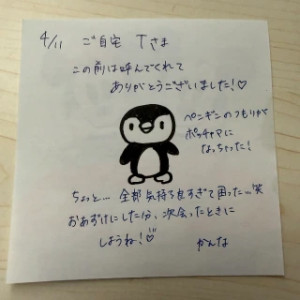 4/11 ご自宅 Tさま
この前は呼んでくれて
ありがとうございました!♡
ペンギンのつもりが
ポッチャマに
なっちゃった!
ちょっと…全部気持ち良すぎて困った…笑
おあずけにした分、次会ったときに
しようね!♡
かんな